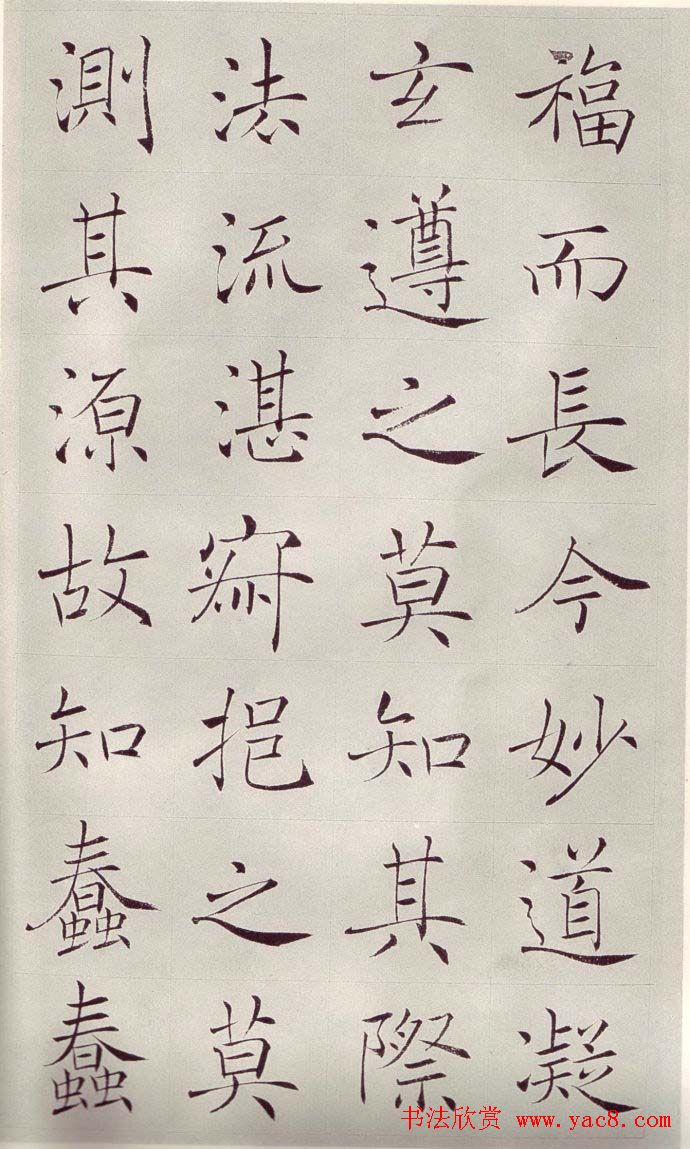 福而長今妙道凝
玄遵之莫知其際
法流湛寂挹之莫
測其源故知蠢蠢
书法欣赏 www.yac8.com